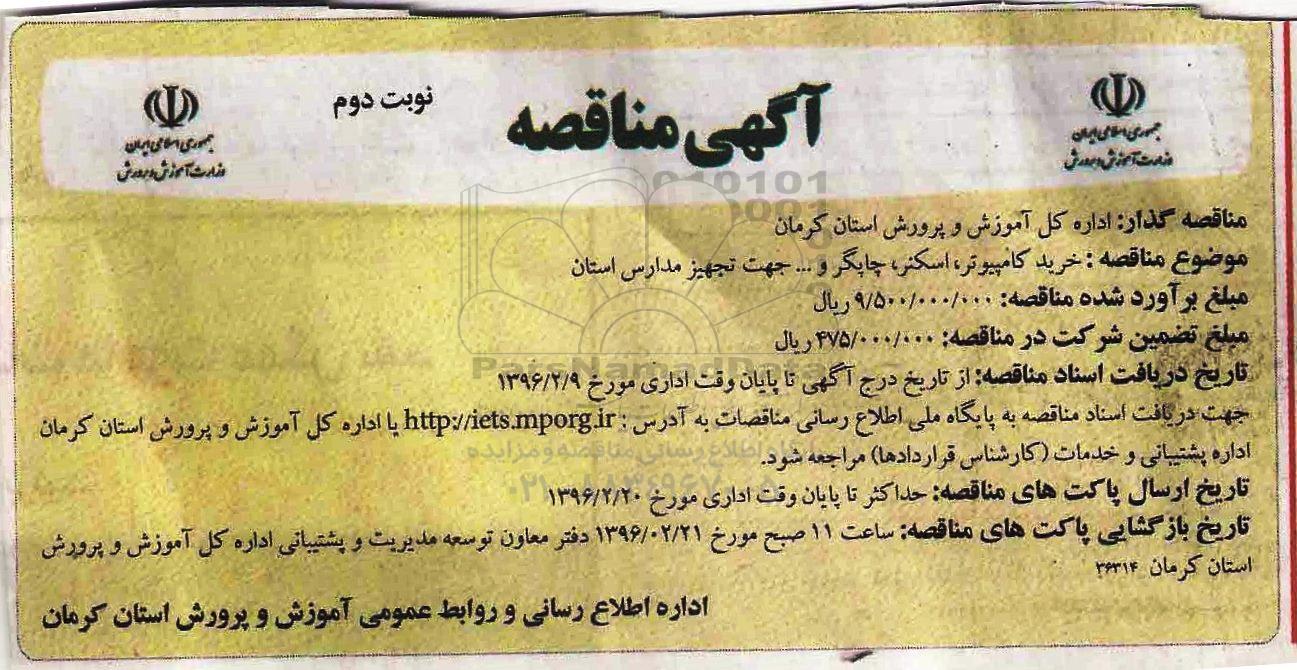 آگهی مناقصه
نوبت دوم
جمهوری اسلامی ایران
وزارت آموزش و پرورش
جمهوری اسلامی ایران
وزارت آموزش و پرورش
مناقصه گذار: اداره کل آموزش و پرورش استان کرمان
موضوع مناقصه : خرید کامپیوتر، اسکنر، چاپگر و ... جهت تجهیز مدارس استان
مبلغ برآورد شده مناقصه: ۹/۵۰۰/۰۰۰/۰۰۰ ریال
مبلغ تضمین شرکت در مناقصه: ۴۷۵/۰۰۰/۰۰۰ ریال
تاریخ دریافت اسناد مناقصه: از تاریخ درج آگهی تا پایان وقت اداری مورخ ۱۳۹۶/۲/۹
جهت دریافت اسناد مناقصه به پایگاه ملی اطلاع رسانی مناقصات به آدرس : http://iets.mporg.ir یا اداره کل آموزش و پرورش استان کرمان
اداره پشتیبانی و خدمات (کارشناس قراردادها) مراجعه شود.
تاریخ ارسال پاکت های مناقصه: حداکثر تا پایان وقت اداری مورخ ۱۳۹۶/۲/۲۰
تاریخ بازگشایی پاکت های مناقصه: ساعت ۱۱ صبح مورخ ۱۳۹۶/۰۲/۲۱ دفتر معاون توسعه مدیریت و پشتیبانی اداره کل آموزش و پرورش
استان کرمان ۳۶۳۱۴
اداره اطلاع رسانی و روابط عمومی آموزش و پرورش استان کرمان